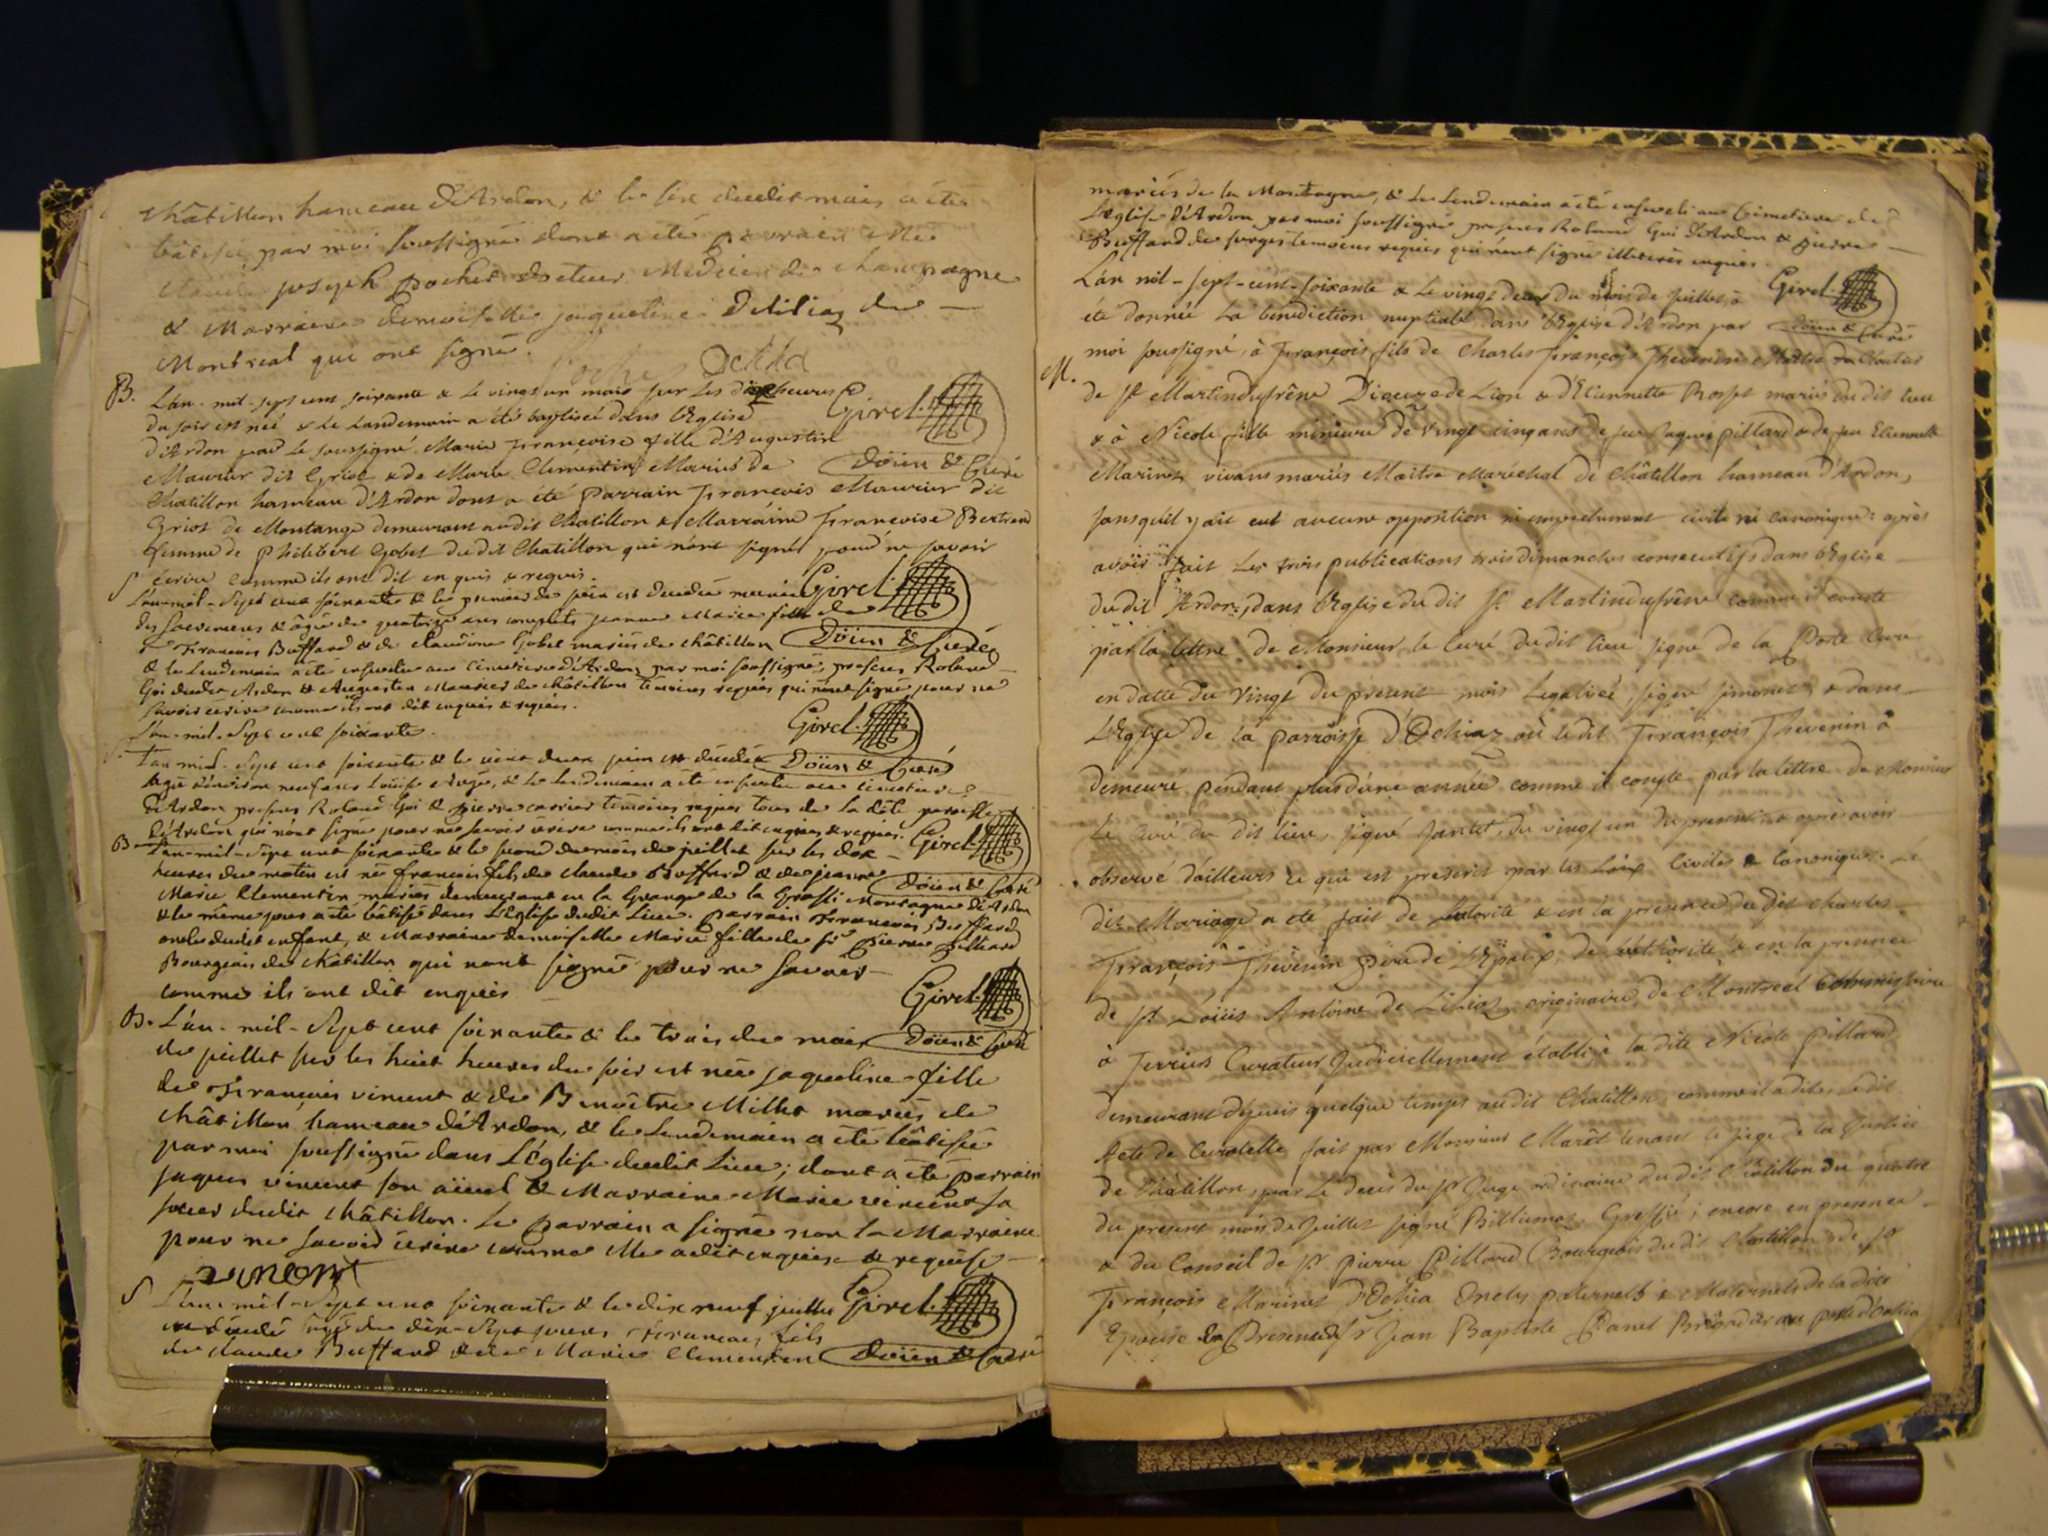 Châtillon hameau d'Ardon, & le six dudit mois a été
bâtisé par moi soussigné dont a été parrain
Claude joseph pochet docteur Medicin de champagne
& Marraine demoiselle jaqueline Delilia de
Montreal qui ont signé.
B. L'an mil sept cent soixante & le vingt un mais sur les dix heures
Girel.
du soir est né & le landemain a été baptisée dans l'Eglise
d'Ardon par le soussigné Marie Françoise fille d'Augustin
Maurier dit Griot & de Marie Clementin Mariés de
Doïen & Curé
Chatillon hameau d'Ardon dont a été parrain François Maurier dit
Griot de Montange demeurant audit Chatillon & Marraine Francoise Bertrand
femme de Philibert Gobet du dit Chatillon qui n'ont signés pour ne savoir
écrire comme ils ont dit en quis & requis.
Girel.
S L'an-mil-Sept cent soixante & le premier de juin est decedée munie
des sacremens & âgée de quatorze ans complets jeanne Marie fille de
Doïen & Curé
François Buffard & de claudine Gobet mariés de châtillon
& le lendemain a été ensevelie au cimetiere d'Ardon par moi soussigné, presens Roland
Goi dudit Ardon & Augustin Maurier de châtillon témoins requis qui n'ont signé pour ne
savoir ecrire comme ils ont dit enquis & requis.
Girel.
L'an-mil-Sept cent soixante.
L'an mil-Sept cent soixante & le vint deux juin est décédée
Doïen & Curé
agée d'environ neuf ans & le lendemain a été ensevelie au cimetiere
d'Ardon presens Roland Goi & pierre carrier témoins requis tous de la dite paroisse
d'Ardon qui n'ont signé pour ne savoir ecrire comme ils ont dit enquis & requis.
Girel.
B L'an-mil-Sept cent soixante & le second du mois de juillet sur les dix
heures du matin est né françois fils de claude Buffard & de jeanne
Doïen & Curé
Marie Clementin mariés demeurant en la Grange de la Montagne d'Ardon
& le même jour a été bâtisé dans L'Eglise dudit Lieu. parrain François Buffard
oncle dudit enfant, & Marraine demoiselle Marie fille de Sr Pierre Pillard
Bourgeois de Châtillon qui n'ont signé pour ne savoir
comme ils ont dit enquis
Girel.
B. L'an-mil-Sept cent soixante & le trois du mois
Doïen & Curé
de juillet sur les huit heures du soir est née jaqueline fille
de François vincent & de Benoîtte Millet mariés de
Châtillon hameau d'Ardon, & le lendemain a été bâtisée
par moi soussigné dans L'Église dudit Lieu; dont a été parrain
jaques vincent son aïeul & Marraine Marie vincent sa
soeur dudit châtillon. Le parrain a signé non la Marraine
pour ne savoir écrire comme elle a dit enquise & requise
vincent
Girel.
S L'an-mil-Sept cent soixante & le dix neuf juillet
est décédé âgé de dix-sept jours François fils
de claude Buffard & de Marie Clementin
Doïen & Curé
mariés de la Montagne, & le lendemain a été enseveli au Cimetiere de
L'Eglise d'Ardon par moi soussigné presens Roland Goi d'Ardon & pierre
Buffard des forges temoins requis qui n'ont signé illiterés enquis.
Girel.
L'an mil-sept-cent-soixante & le vingt deux du mois de Juillet a
été donnée la bénédiction nuptiale dans l'Eglise d'Ardon par
Doïen & Curé
M. moi soussigné, à François fils de Charles François Thevenin Maitre
de St Martindufrêne Dioceze de Lion & d'Etiennette Rosset mariés du dit lieu
& à Nicole fille mineure de vingt cinq ans de feu Jaques pillard & de feu Etiennette
Marinet vivans mariés Maître Maréchal de Châtillon hameau d'Ardon,
sans qu'il y ait eut aucune opposition ni empechement civile ni canonique: après
avoir fait les trois publications trois dimanches consecutifs dans l'Eglise
du dit Ardon, dans l'Eglise du dit St Martindufrêne comme il conste
par la lettre de Monsieur le Curé du dit lieu signé de la Poste Curé
en datte du vingt du present mois Legalisé signé simonet, & dans
L'Eglise de la parroisse d'Ochiaz où le dit François Thevenin a
demeuré pendant plus d'une année comme il conste par la lettre de Monsieur
le curé du dit lieu, signé Jantet, du vingt un du present & après avoir
observé d'ailleurs ce qui est prescrit par les Loix Civiles & Canoniques. Le
dit Mariage a été fait de l'autorité & en la presence du dit Charles
François Thevenin pere de l'Epoux, de l'authorité & en la presence
de Sr Loüis Antoine de Liliaz originaire de Montreal Commissaire
à Terriers Curateur Judiciellement établi à la dite Nicole Pillard
demeurant depuis quelque temps au dit Chatillon, comme il a dit, le dit
Acte de Curatelle fait par Monsieur Marêt tenant le siege de la Justice
de Châtillon, par le deces du Sr Juge ordinaire du dit Châtillon du quatre
du present mois de Juillet signé Billiemaz Greffié; encore en presence
& du Conseil de Sr Pierre Pillard Bourgeois du dit Chatillon & de Sr
François Marinet D'Ochia Oncles paternels & Maternels de la dite
Epouse En Presence de Sr Jean Baptiste Panet Brigadier au poste d'ochia